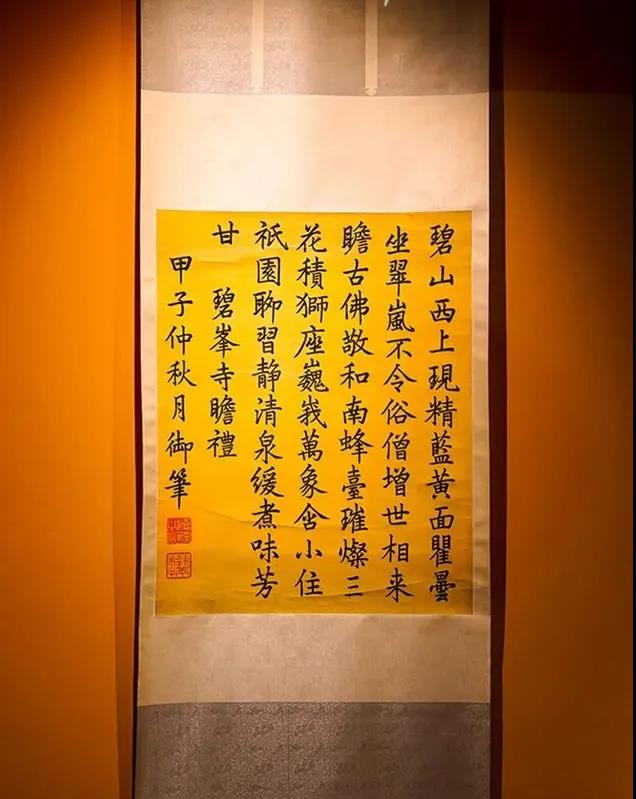 碧山西上現精藍黃面瞿曇
坐翠嵐不令俗僧增世相来
瞻古佛敬和南蜂臺璀燦三
花積獅座巍峩萬象含小住
祇園聊習静清泉缓煮味芳
甘　碧峯寺瞻禮
甲子仲秋月御筆